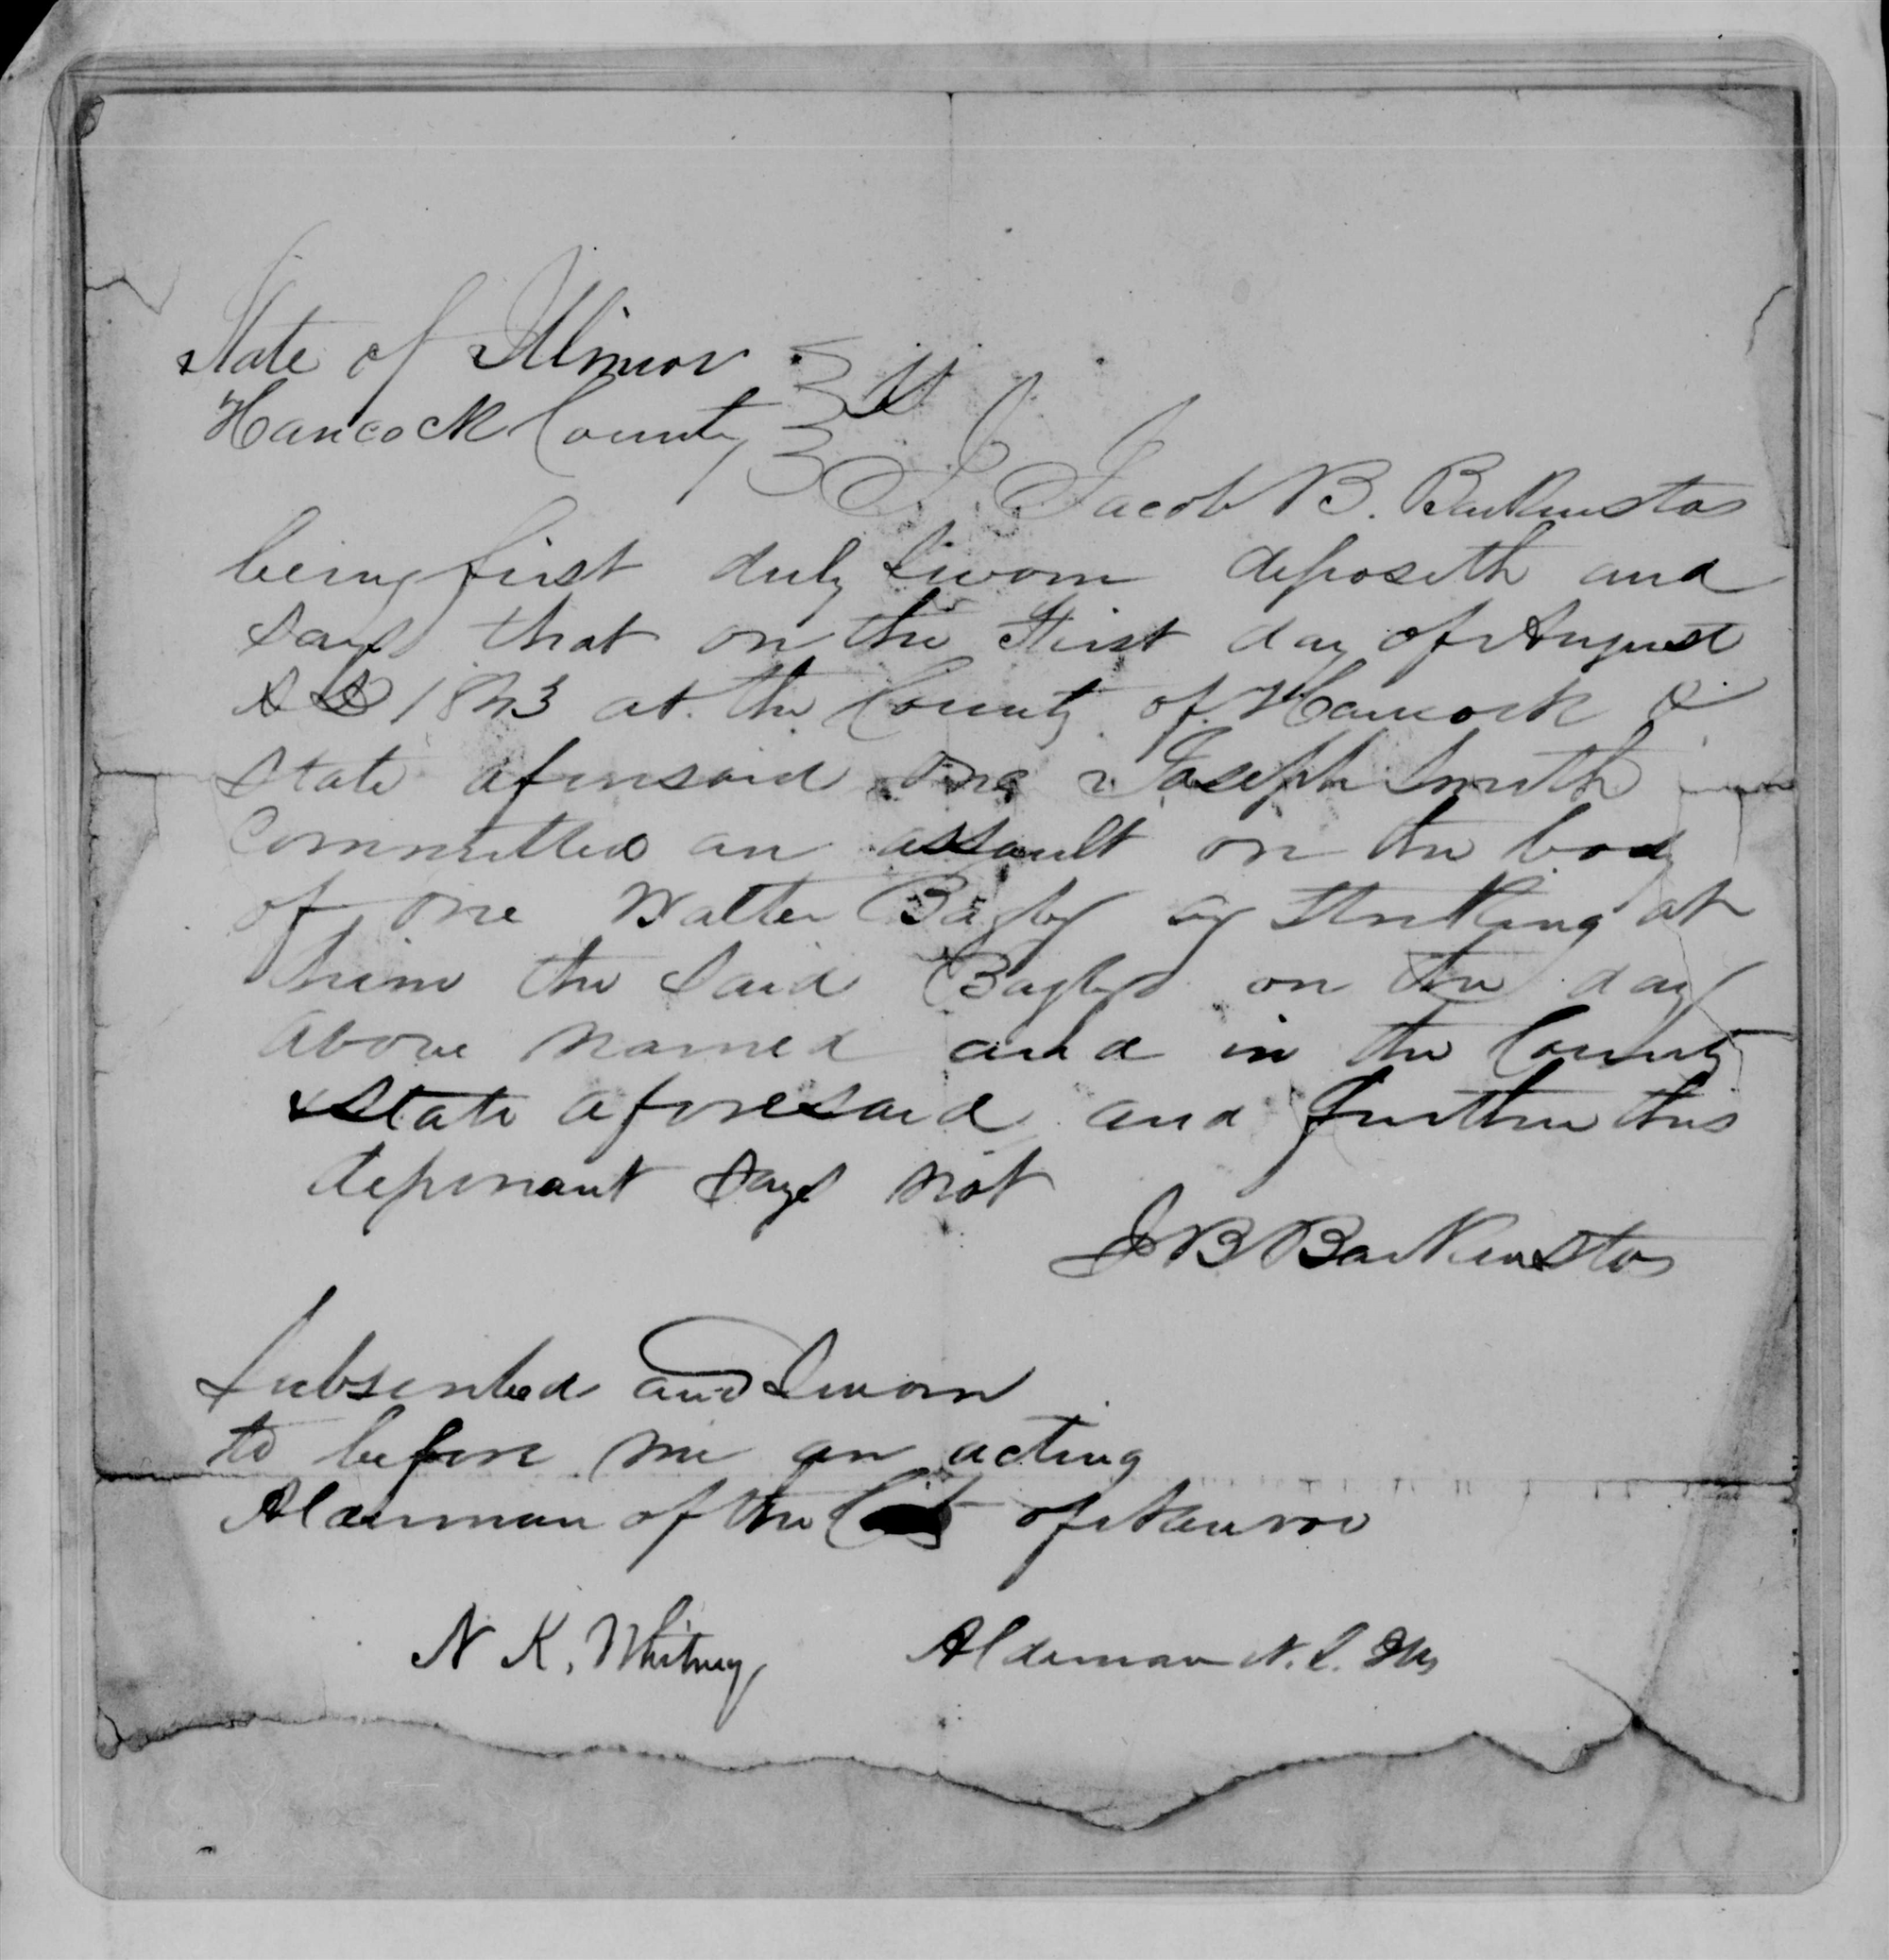 State of Illinois
Hancock County } ss
I Jacob B. Backenstos
being first duly sworn deposeth and
says that on the First day of August
A D 1843 at the County of Hancock &
State aforesaid one Joseph Smith
Committed an assault on the body
of one Walter Bagby by striking at
him the said Bagby on the day
above named and in the County
& State aforesaid and further this
deponant says not
J B Backenstos
Subscribed and Sworn
to before me an acting
Alderman of the City of Nauvoo
N K. Whitney, Alderman N. C. Ills